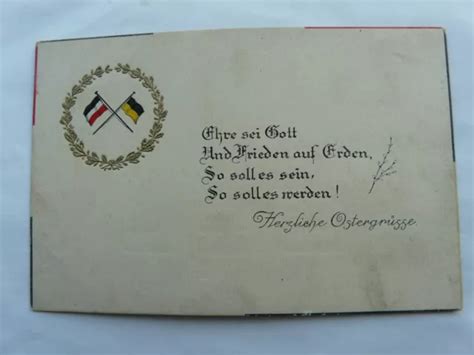 Ehre sei Gott
Und Frieden auf Erden,
So soll es sein,
So soll es werden!
Herzliche Ostergrüsse.